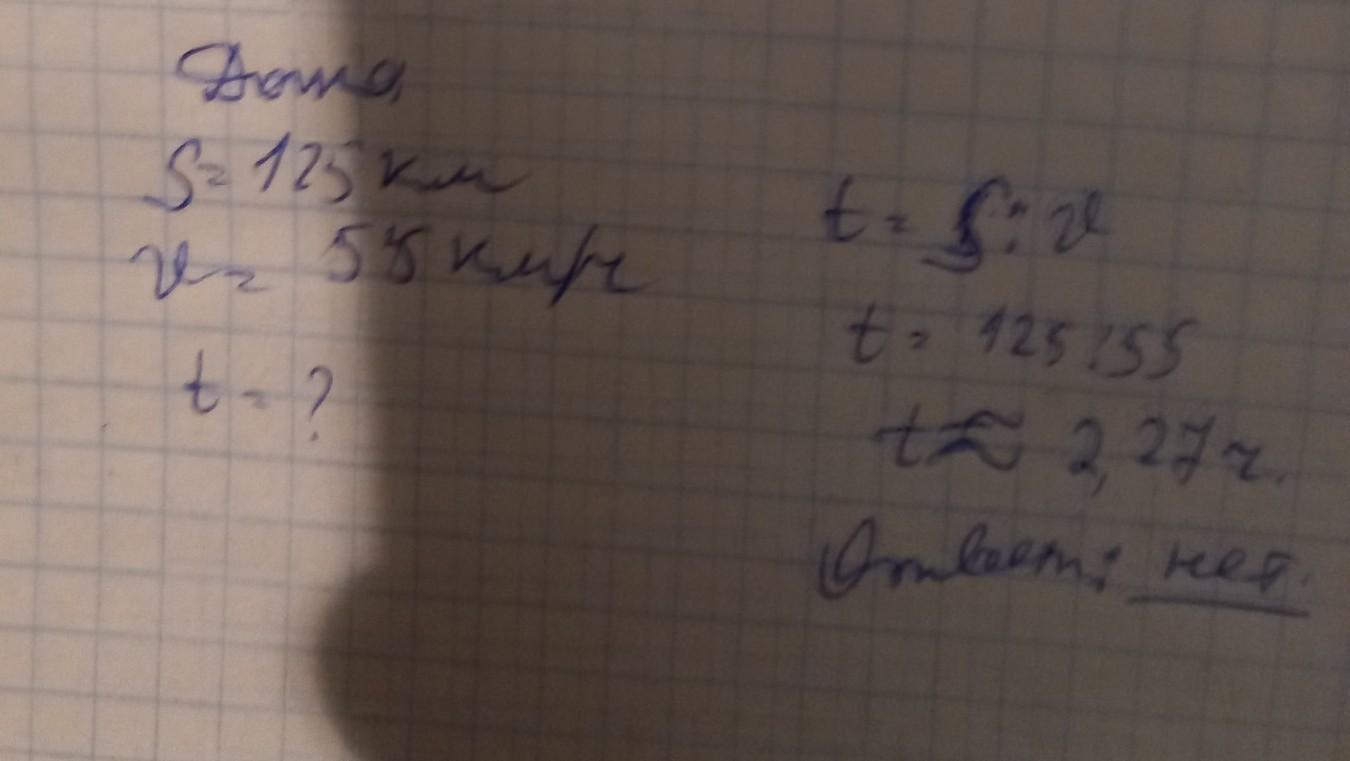 Дома
S = 125 км
v = 55 км/ч
t = ?
t = S : v
t = 125 : 55
t ≈ 2,27 ч.
Ответ: нет.